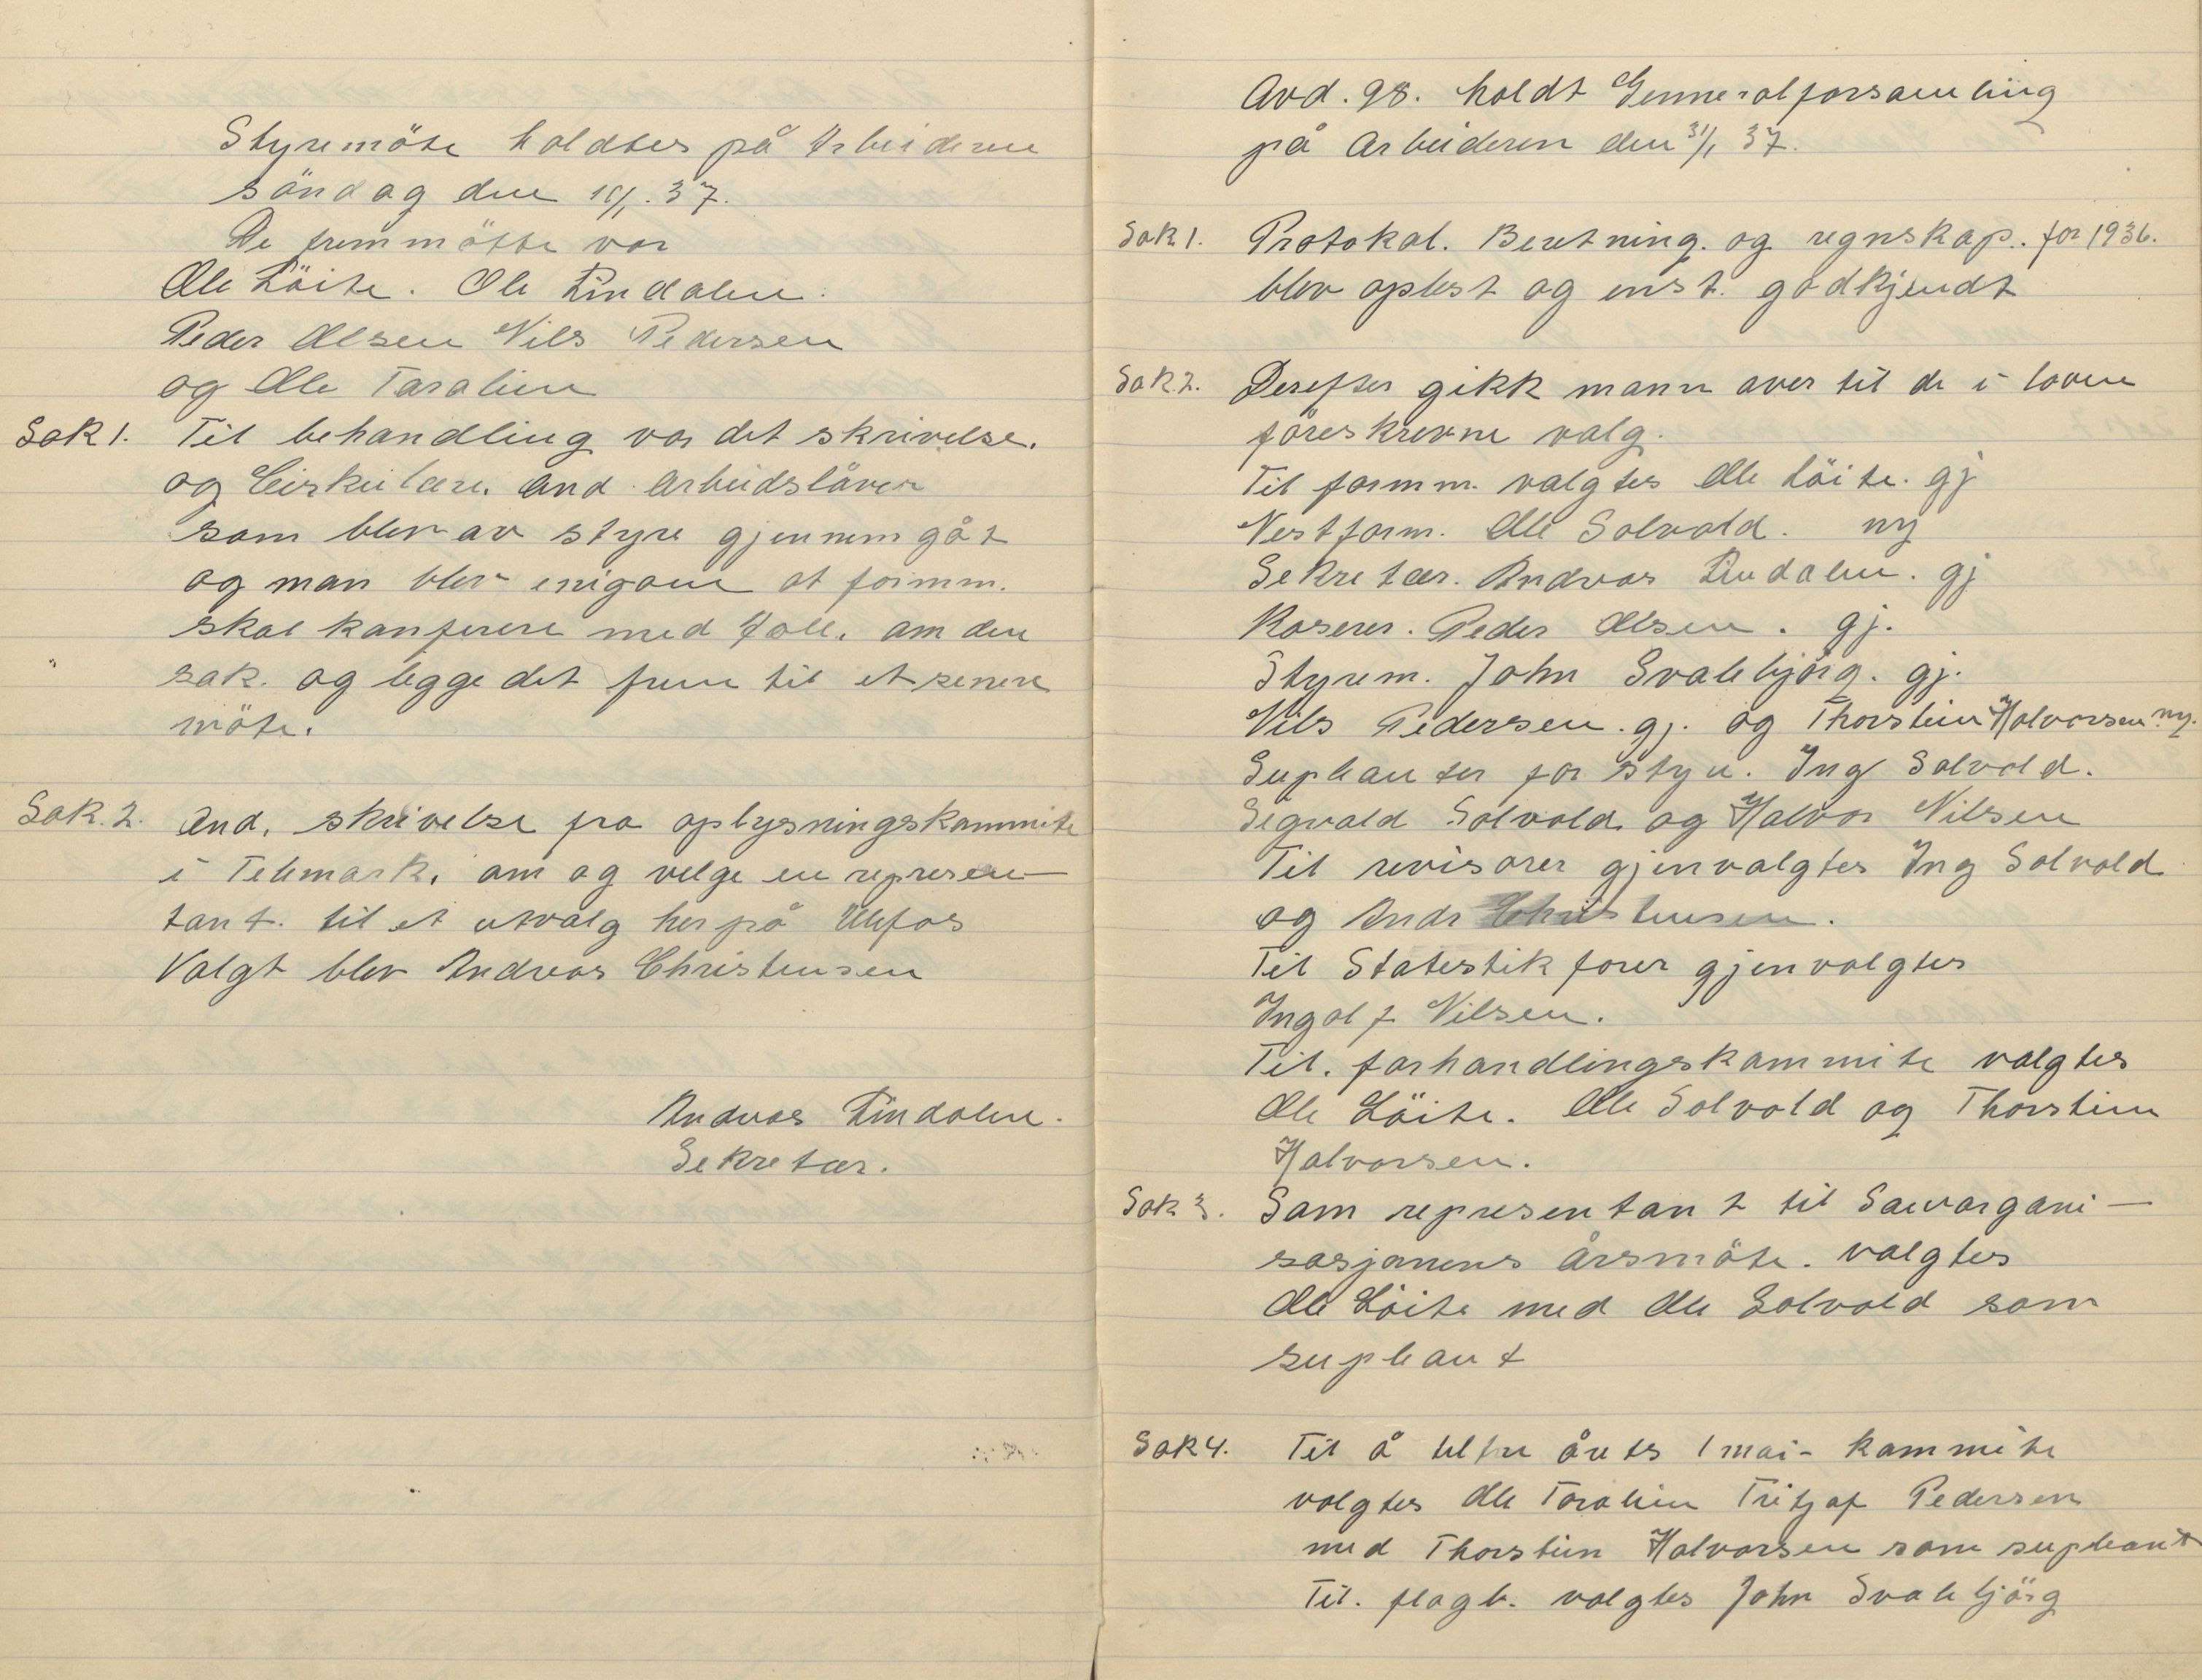 Styremöte holdtes på Arbeideren
söndag den 10/1. 37.
De fremmötte var
Ole Löite. Ole Lindalen.
Peder Olsen Nils Pedersen
og Ole Taralien
Sak 1. Til behandling var det skrivelse.
og Cirkulære. And. Arbeidslåven
som blev av styre gjennemgåt
og man blev enig om at formm.
skal konferere med Joll. om den
sak. og legge det frem til et senere
möte.
Sak. 2. And. skrivelse fra oplysningskommite
i Telemark, om og velge en represen-
tant. til et utvalg her på Ulefos
Valgt blev Andreas Christensen
Andreas Lindalen.
Sekretær.
Avd. 98. holdt Genneralforsamling
på Arbeideren den 31/1 37.
Sak 1. Protokol. Beretning. og regnskap. for 1936.
blev oplest og enst. godkjendt
Sak 2. Derefter gikk mann over til de i loven
föreskrevne valg.
Til formm. valgtes Ole Löite. gj
Nestform. Ole Solvold. ny
Sekretær. Andreas Lindalen. gj
Kaserer. Peder Olsen. gj.
Styrem. John Svalebjörg. gj.
Nils Pedersen. gj. og Thorstein Halvorsen ny.
Supleanter for styre. Ing Solvold.
Sigvald Solvold. og Halvor Nilsen
Til revisorer gjenvalgtes Ing Solvold
og Andr Christensen.
Til Statestikforer gjenvalgtes
Ingolf Nilsen.
Til. forhandlingskommite valgtes
Ole Löite. Ole Solvold og Thorstein
Halvorsen.
Sak 3. Som representant til Samorgani-
sasjonens årsmöte. valgtes
Ole Löite med Ole Solvold som
supleant
Sak 4. Til å tiltre årets 1 mai- kommite
valgtes Ole Taralien Fritjof Pedersen
med Thorstein Halvorsen som supleant
Til. flagb. valgtes John Svalebjörg